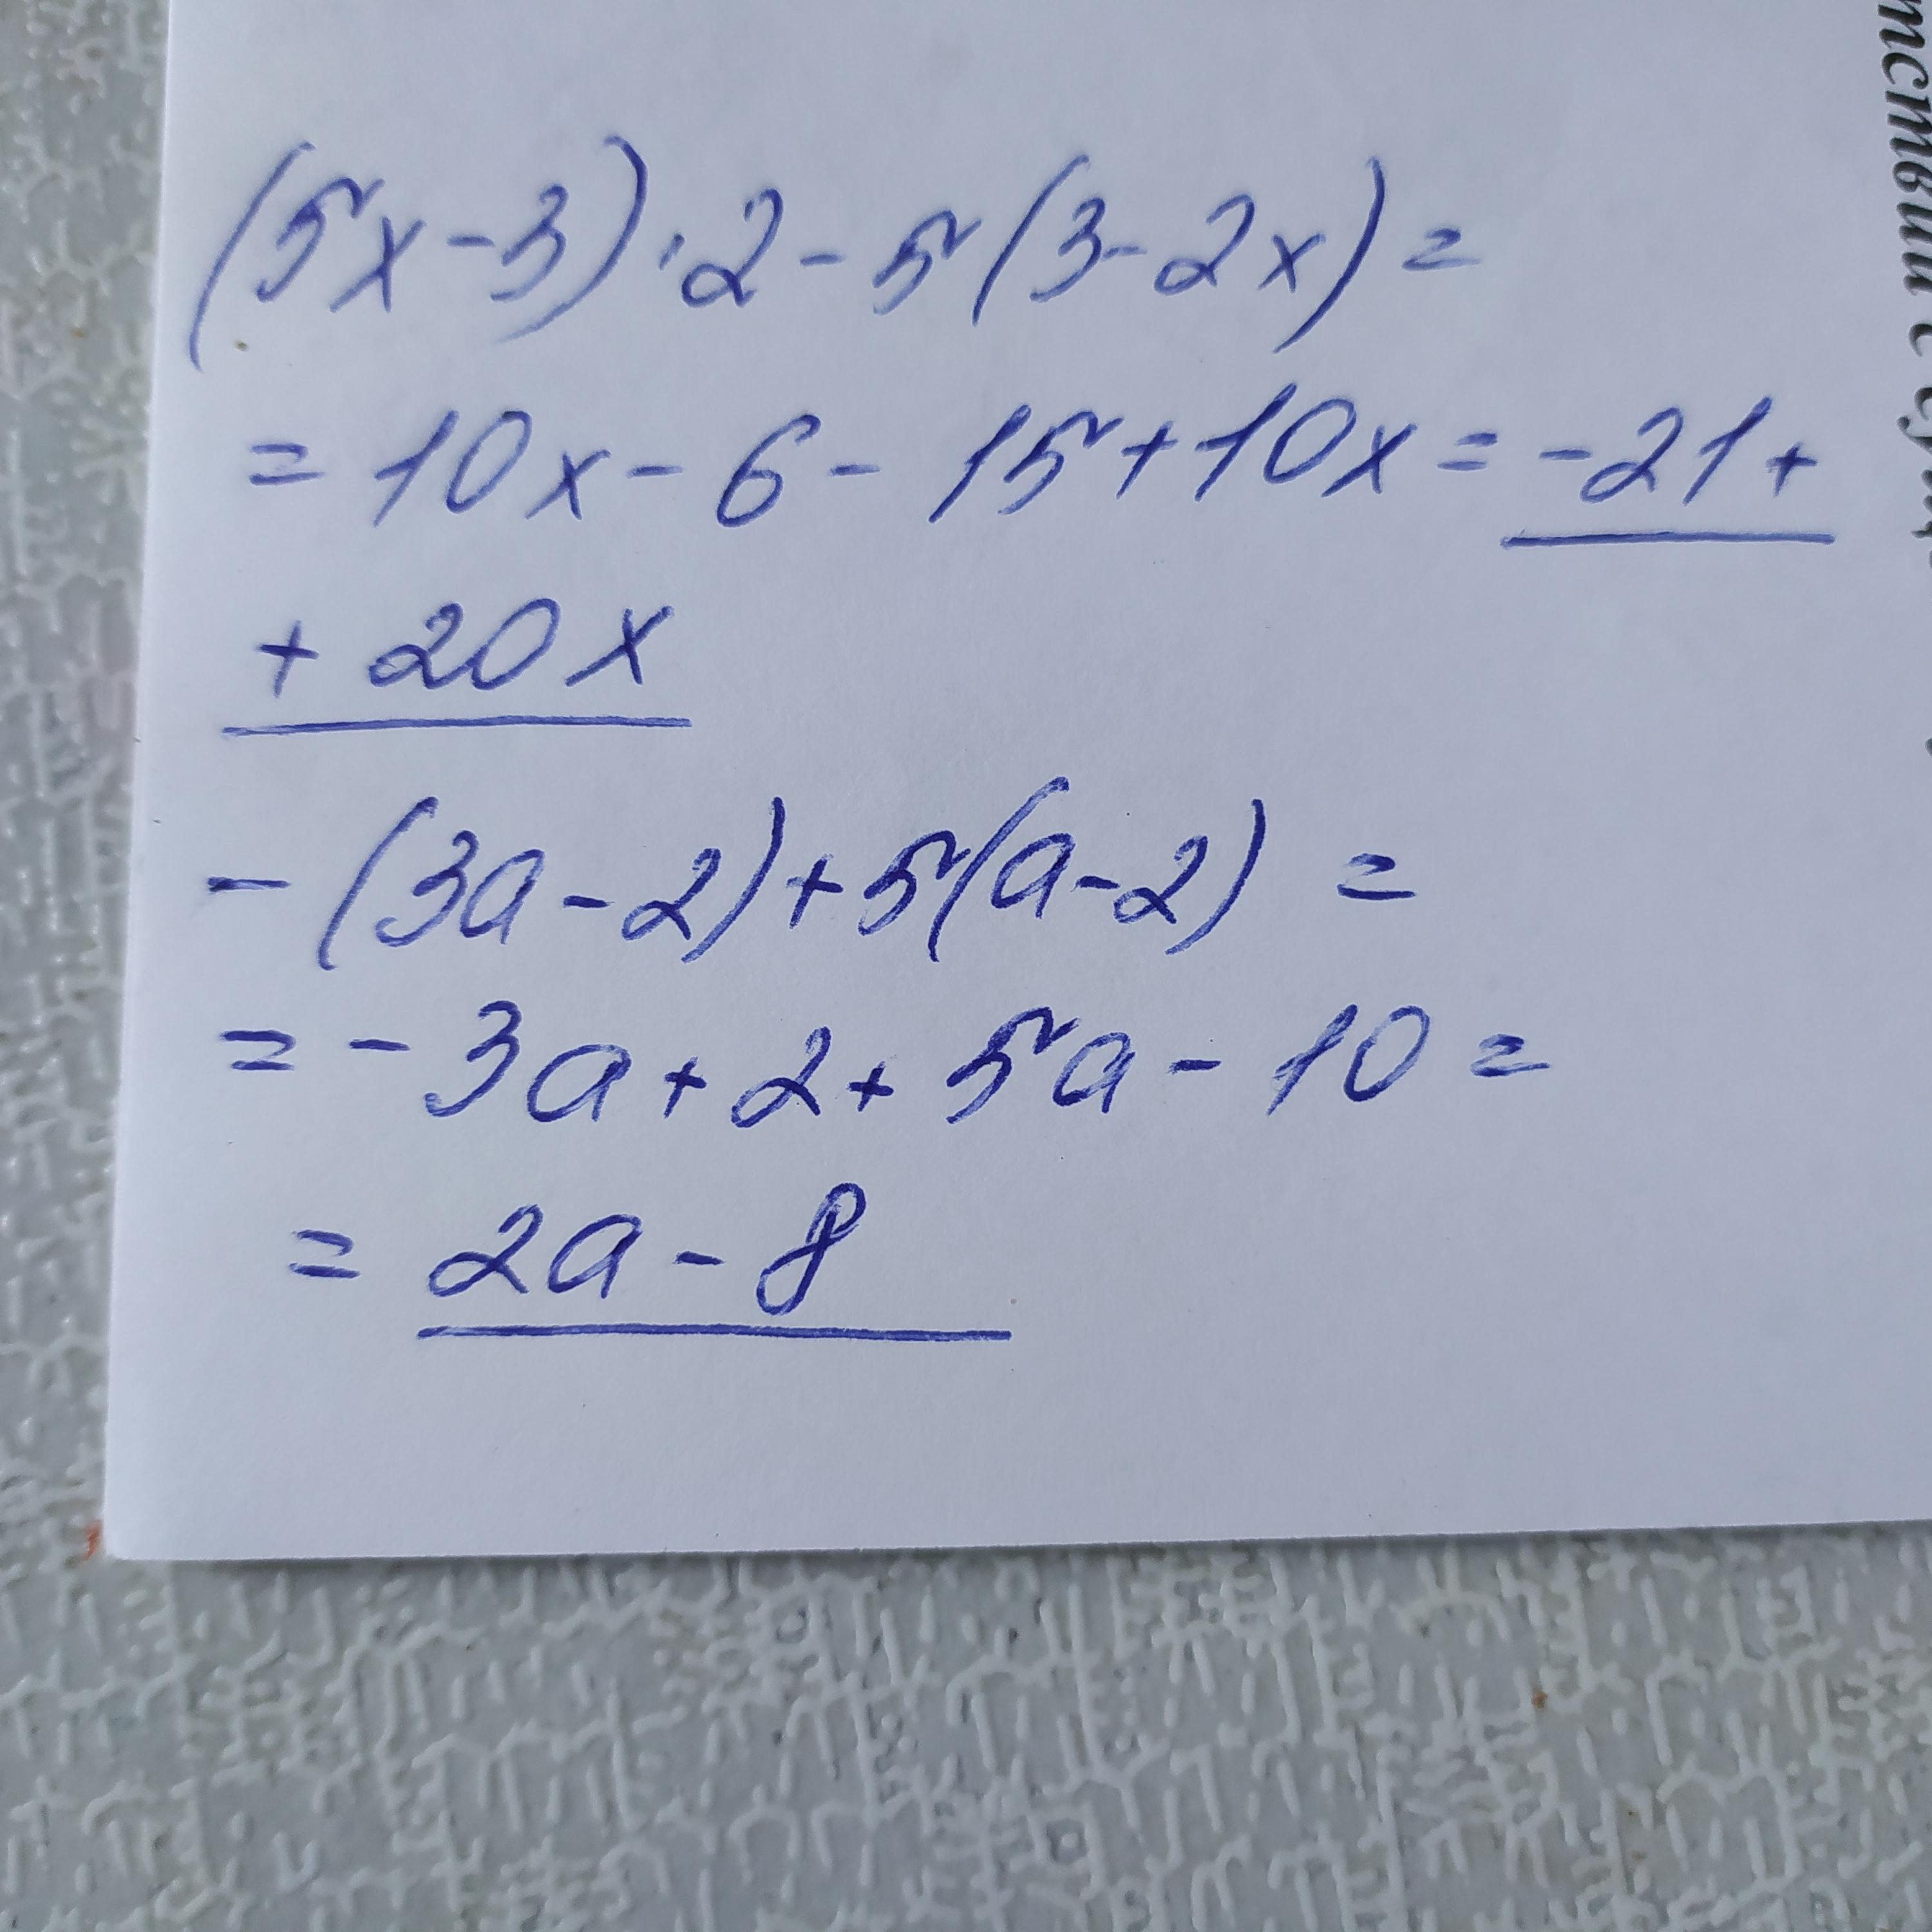 (5x-3)·2-5(3-2x)=
=10x-6-15+10x=-21+
+20x
-(3a-2)+5(a-2)=
=-3a+2+5a-10=
=2a-8